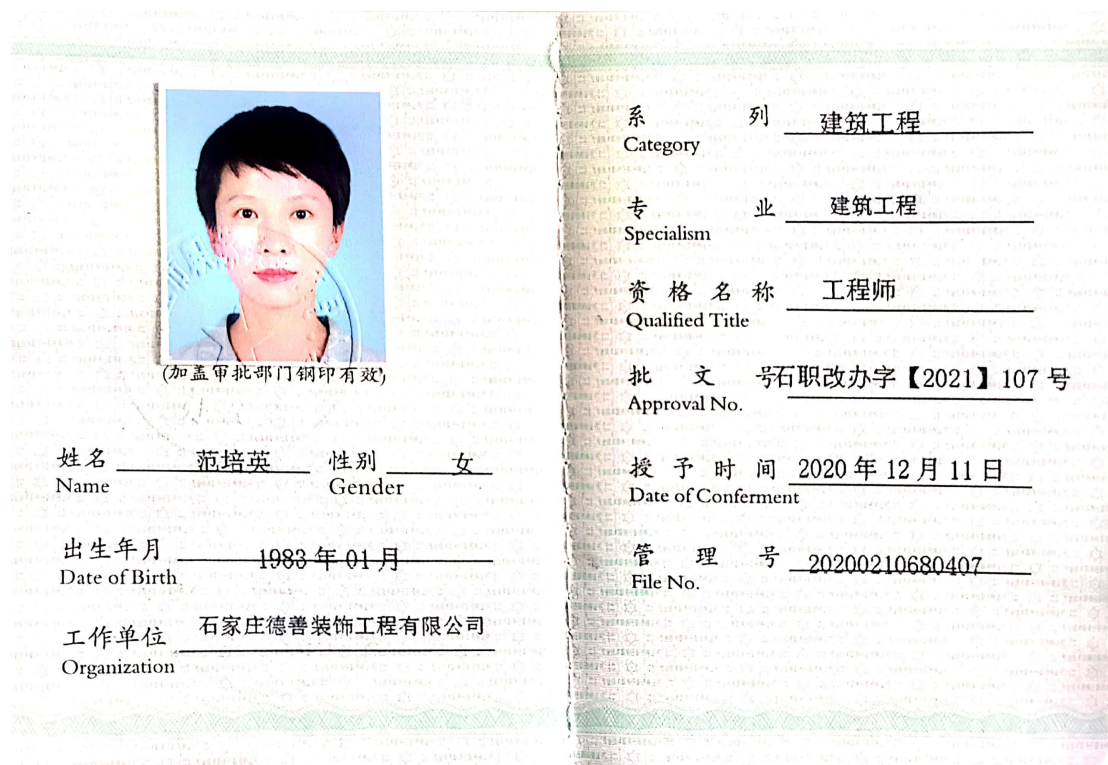 (加盖审批部门钢印有效)
姓名 范培英 性别 女
Name Gender
出生年月 1983年01月
Date of Birth
工作单位 石家庄德善装饰工程有限公司
Organization
系列 建筑工程
Category
专业 建筑工程
Specialism
资格名称 工程师
Qualified Title
批文号 石职改办字【2021】107号
Approval No.
授予时间 2020年12月11日
Date of Conferment
管理号 20200210680407
File No.